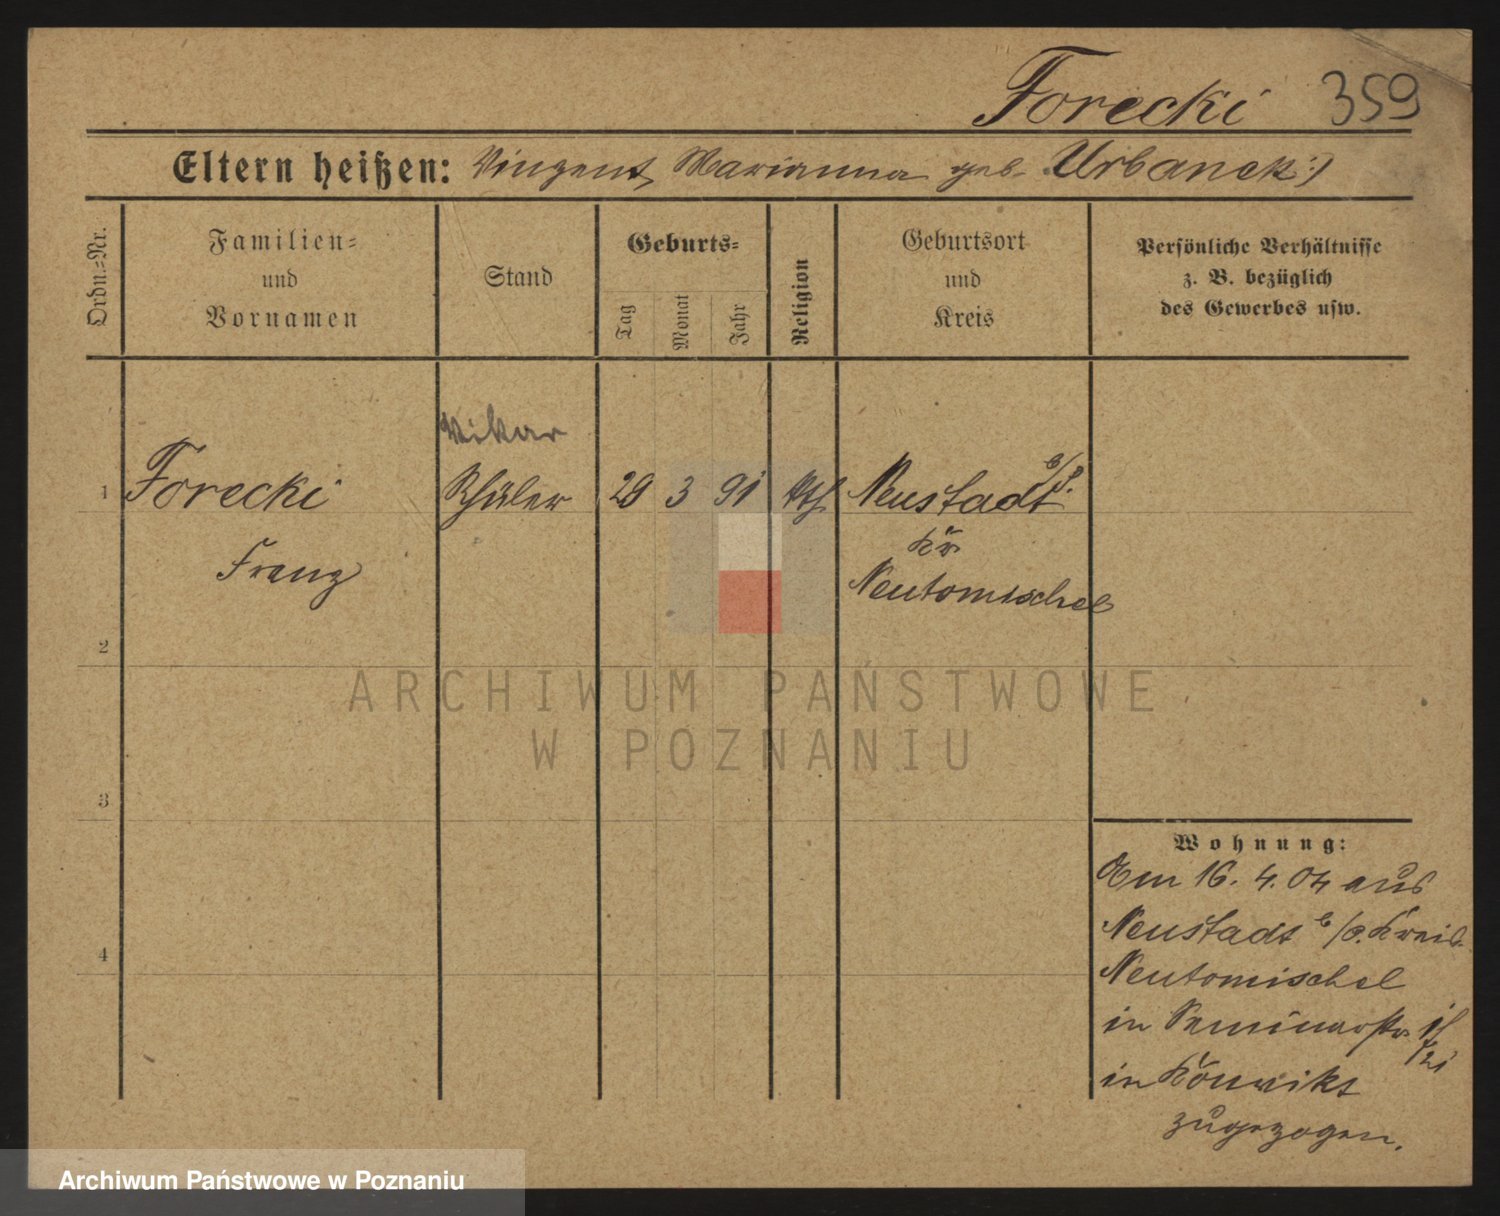 Forecki 359
Eltern heißen: Vinzent, Marianna geb. Urbanek :)
Ordn.-Nr.
Familien- und Vornamen
Stand
Geburts-
Tag
Monat
Jahr
Religion
Geburtsort und Kreis
Persönliche Verhältnisse
z. B. bezüglich
des Gewerbes usw.
Vikar
1 Forecki Schüler 29 3 91 kth Neustadt b/P.
Kr.
Franz Neutomischel
2
ARCHIWUM PAŃSTWOWE
W POZNANIU
3
Wohnung:
Am 16. 4. 04 aus
Neustadt b/P. Kreis
4
Neutomischel
in Seminarstr.
in Konvikt
zugezogen.
Archiwum Państwowe w Poznaniu